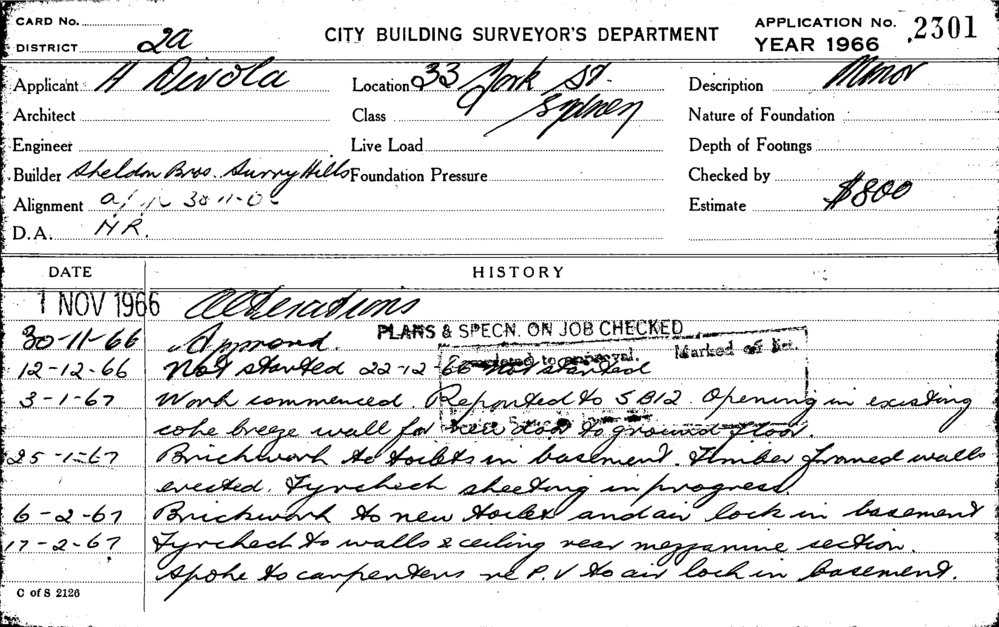 CARD No.
DISTRICT 2a
CITY BUILDING SURVEYOR'S DEPARTMENT
APPLICATION No. 2301
YEAR 1966
Applicant H Divola
Location 33 York St.
Sydney
Description Minor
Architect
Class
Nature of Foundation
Engineer
Live Load
Depth of Footings
Builder Sheldon Bros. Surry Hills
Foundation Pressure
Checked by
Alignment 30-11-
Estimate $800
D.A. H R.
DATE HISTORY
1 NOV 1966 Alterations
PLANS & SPECN. ON JOB CHECKED
30-11-66 Approved.
Marked off
to approval.
12-12-66 Not started 22-12-66 Not started
3-1-67 Work commenced. Reported to SB12. Opening in existing
coke breeze wall for new door to ground floor.
25-1-67 Brickwork to toilets in basement. Timber framed walls
erected. Fyrchech sheeting in progress.
6-2-67 Brickwork to new toilet and air lock in basement
17-2-67 Fyrchech to walls & ceiling rear mezzanine section.
Spoke to carpenters re P.V to air lock in basement.
C of S 2126